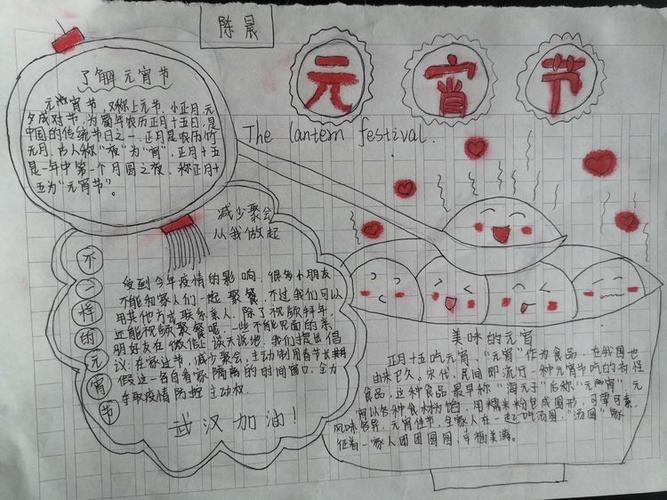 陈晨
元宵节
The lantern festival.
了解元宵节
元宵节，又称上元节，小正月，元
夕或灯节，为每年农历正月十五日，是
中国的传统节日之一，正月是农历的
元月，古人称"夜"为"宵"，正月十五
是一年中第一个月圆之夜，称正月十
五为"元宵节"。
减少聚会
从我做起
不一样的元宵节
受到今年疫情的影响，很多小朋友
不能和家人们一起聚餐，不过我们可以
用其他方式联系亲人，除了视频拜年，
还能视频聚餐呢，一些不能见面的亲
朋好友在微信上谈天说地，我们提出倡
议：在家过节，减少聚会，主动利用春节长
假这一各自看家隔离的时间窗口，全力
争取疫情防控主动权。
武汉加油！
美味的元宵
正月十五吃元宵，"元宵"作为食品，在我国也
由来已久，宋代，民间即流行一种元宵节吃的
食品，这种食品，最早称"浮元子"后称"元宵"，
可以各种食材为馅，用糯米粉包成圆形，可荤可素，
风味各异，元宵佳节，全家人在一起吃汤圆，"汤圆"象
征着一家人团团圆圆，幸福美满。